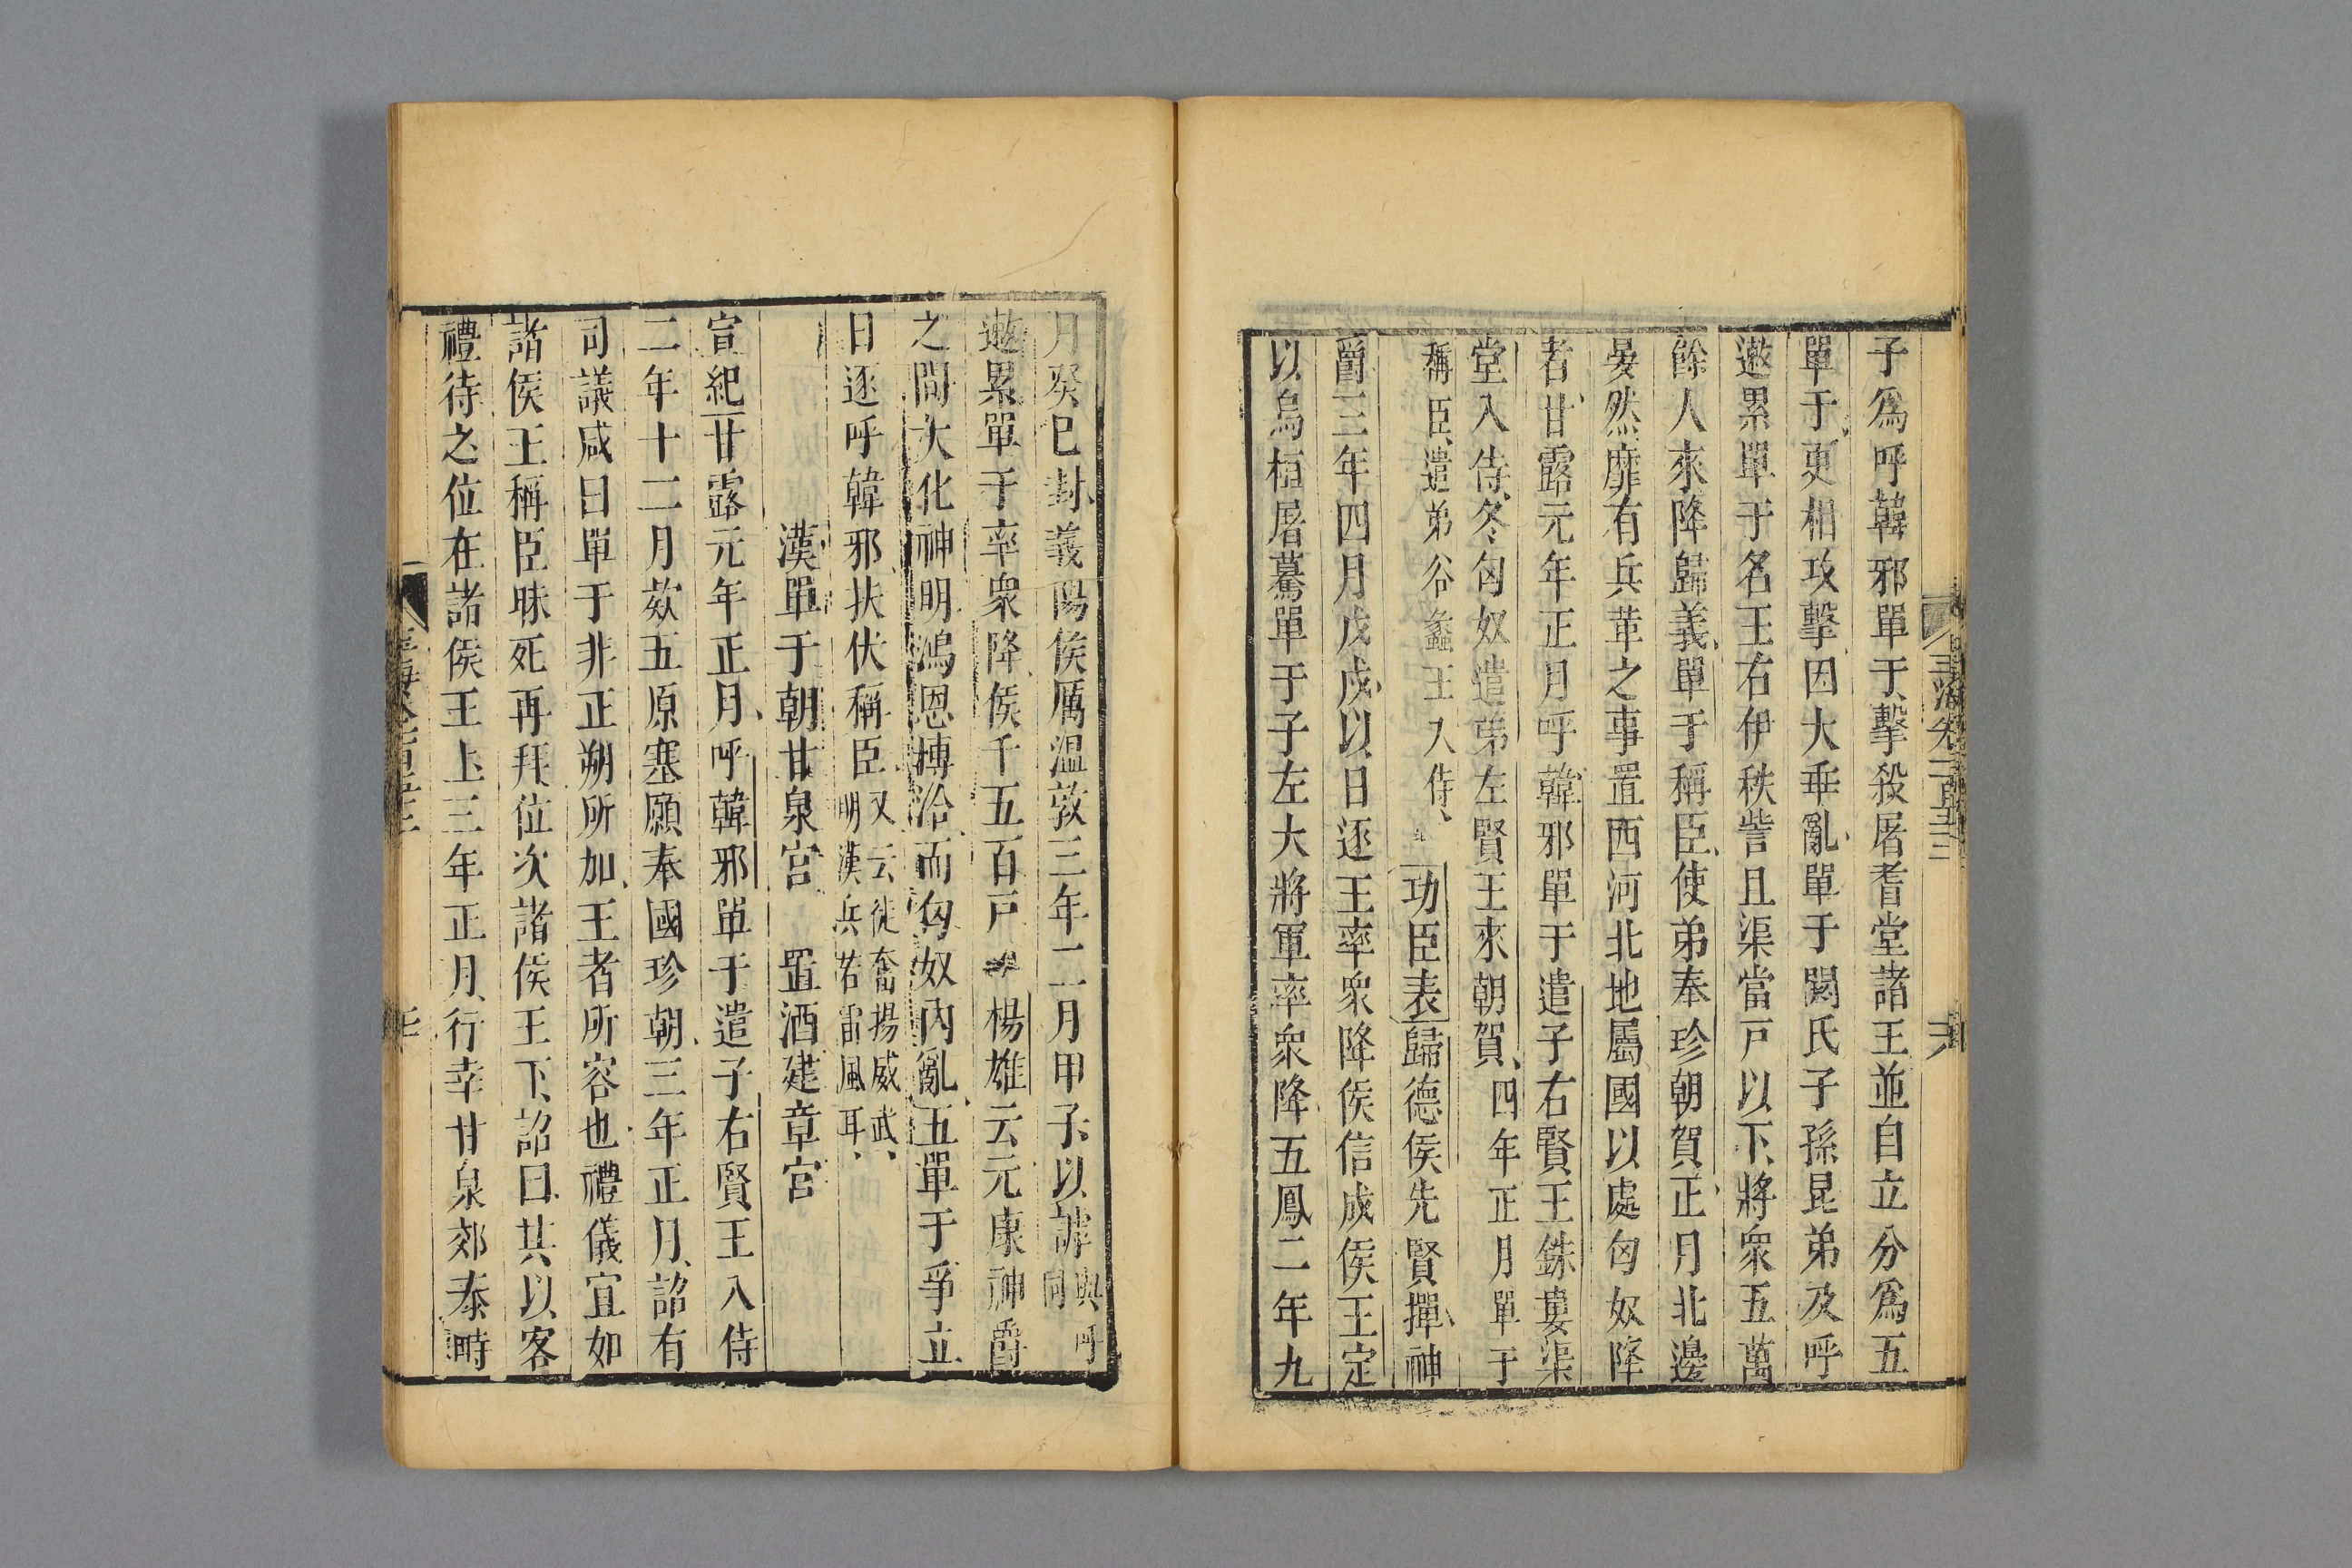 子爲呼韓邪單于擊殺屠耆堂諸王並自立分爲五
單于更相攻擊因大乖亂單于閼氏子孫昆弟及呼
遬累單于名王右伊秩訾且渠當戶以下將衆五萬
餘人來降歸義單于稱臣使弟奉珍朝賀正月北邊
晏然靡有兵革之事置西河北地屬國以處匈奴降
者甘露元年正月呼韓邪單于遣子右賢王銖婁渠
堂入侍冬匈奴遣弟左賢王來朝賀四年正月單于
稱臣遣弟谷蠡王入侍 功臣表歸德侯先賢撣神
爵三年四月戊戌以日逐王率衆降侯信成侯王定
以烏桓屠驀單于子左大將軍率衆降五鳳二年九
月癸巳封義陽侯厲溫敦三年二月甲子以謼與呼同
遬累單于率衆降侯千五百戶 楊雄云元康神爵
之間大化神明鴻恩博洽而匈奴內亂五單于爭立
日逐呼韓邪扶伏稱臣又云徒奮揚威武明漢兵若雷風耳
漢單于朝甘泉宮 置酒建章宮
宣紀甘露元年正月呼韓邪單于遣子右賢王入侍
二年十二月款五原塞願奉國珍朝三年正月詔有
司議咸曰單于非正朔所加王者所容也禮儀宜如
諸侯王稱臣昧死再拜位次諸侯王下詔曰其以客
禮待之位在諸侯王上三年正月行幸甘泉郊泰畤